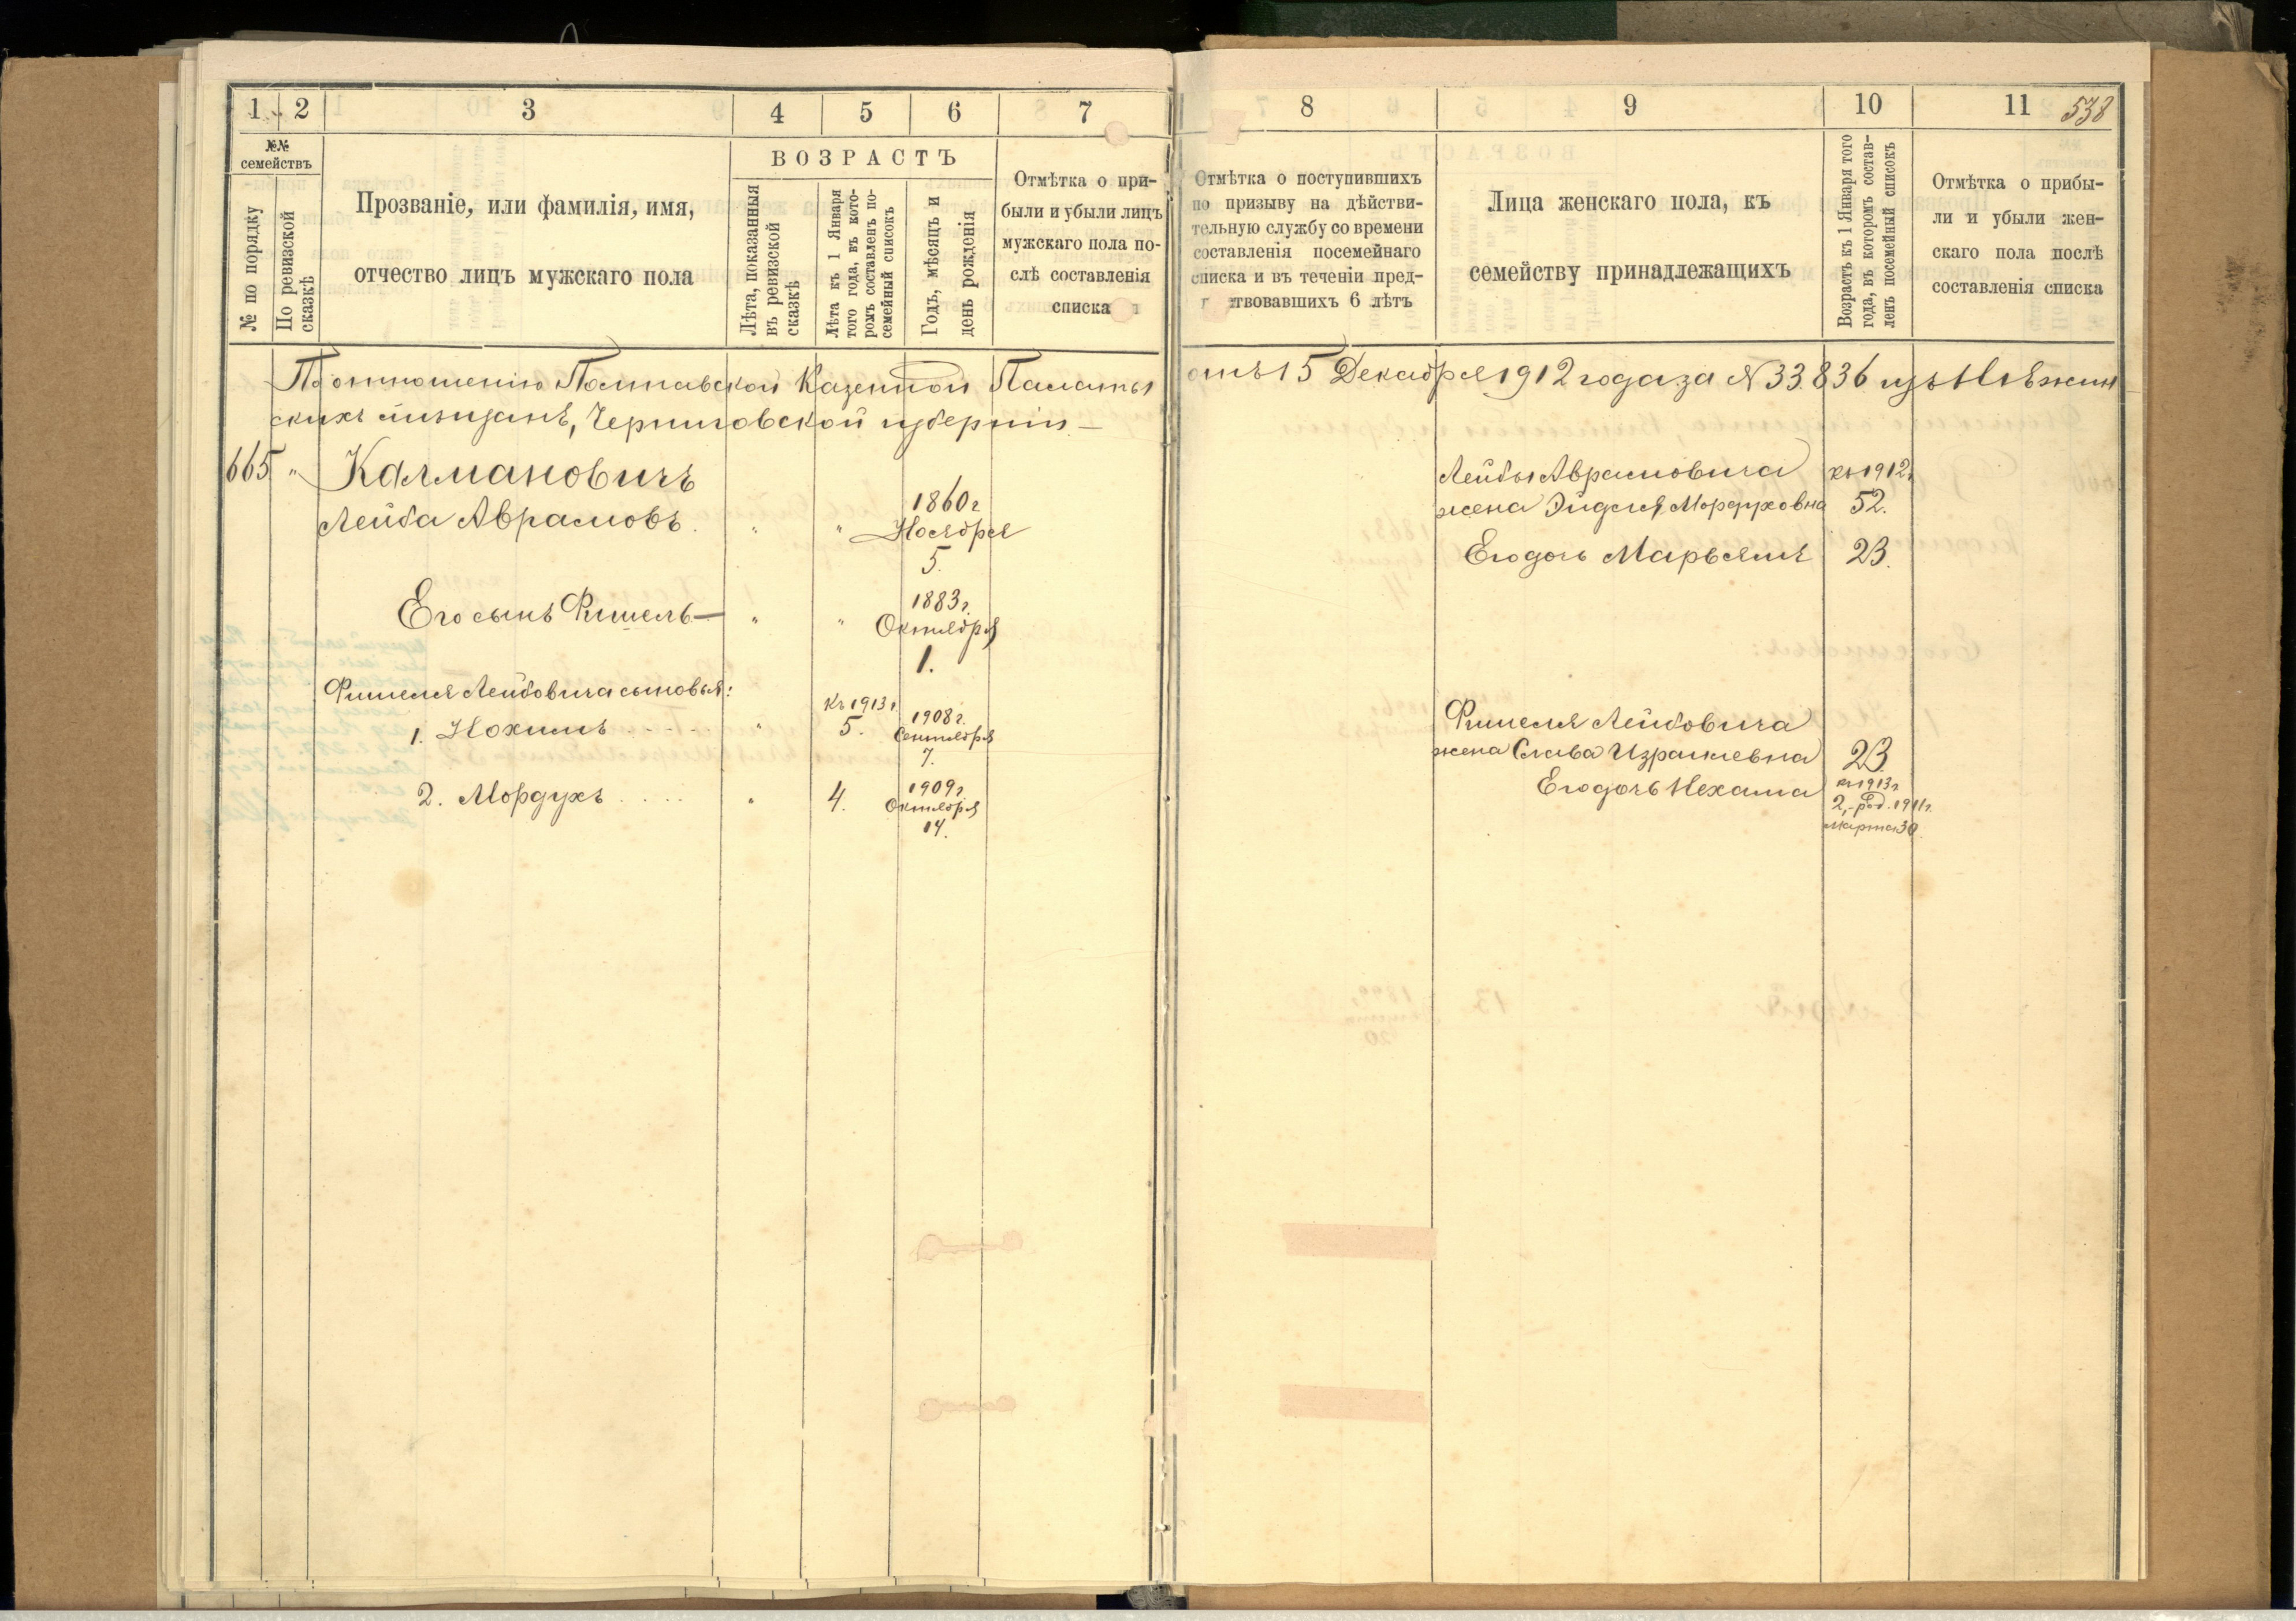 1 2 3 4 5 6 7
№№ семействъ
№ по порядку
По ревизской сказкѣ
Прозваніе, или фамилія, имя,
отчество лицъ мужскаго пола
ВОЗРАСТЪ
Лѣта, показанныя
въ ревизской
сказкѣ
Лѣта къ 1 Января
того года, въ кото-
ромъ составленъ по-
семейный списокъ
Годъ, мѣсяцъ и
день рожденія
Отмѣтка о при-
были и убыли лицъ
мужскаго пола по-
слѣ составленія
списка
По отношенію Полтавской Казенной Палаты
скихъ мѣщанъ, Черниговской губерніи —
665 " Калмановичъ
Лейба Аврамовъ. " " 1860 г
Ноября
5.
Его сынъ Фишель — " " 1883 г.
Октября
1.
Фишеля Лейбовича сыновья:
1. Нохимъ . . . . . " Къ 1913 г. 5. 1908 г.
Сентября
7.
2. Мордухъ . . . . " 4. 1909 г.
Октября
14.
8 9 10 11 538
Отмѣтка о поступившихъ
по призыву на дѣйстви-
тельную службу со времени
составленія посемейнаго
списка и въ теченіи пред-
ствовавшихъ 6 лѣтъ
Лица женскаго пола, къ
семейству принадлежащихъ
Возрастъ къ 1 Января того
года, въ которомъ состав-
ленъ посемейный списокъ
Отмѣтка о прибы-
ли и убыли жен-
скаго пола послѣ
составленія списка
отъ 15 Декабря 1912 года за № 33.836 изъ Нѣжин
Лейбы Аврамовича къ 1912 г.
жена Эйдля Мордуховна 52.
Его дочь Марьямъ 23.
Фишеля Лейбовича
жена Слава Израилевна 23
Его дочь Нехама къ 1913 г.
2, – род. 1911 г.
марта 30